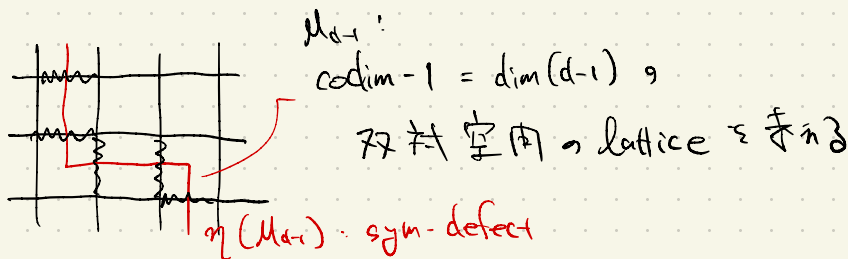 M_{d-1} :
codim-1 = dim(d-1) の
双対空間 の lattice を 表わる
η(M_{d-1}) : sym-defect